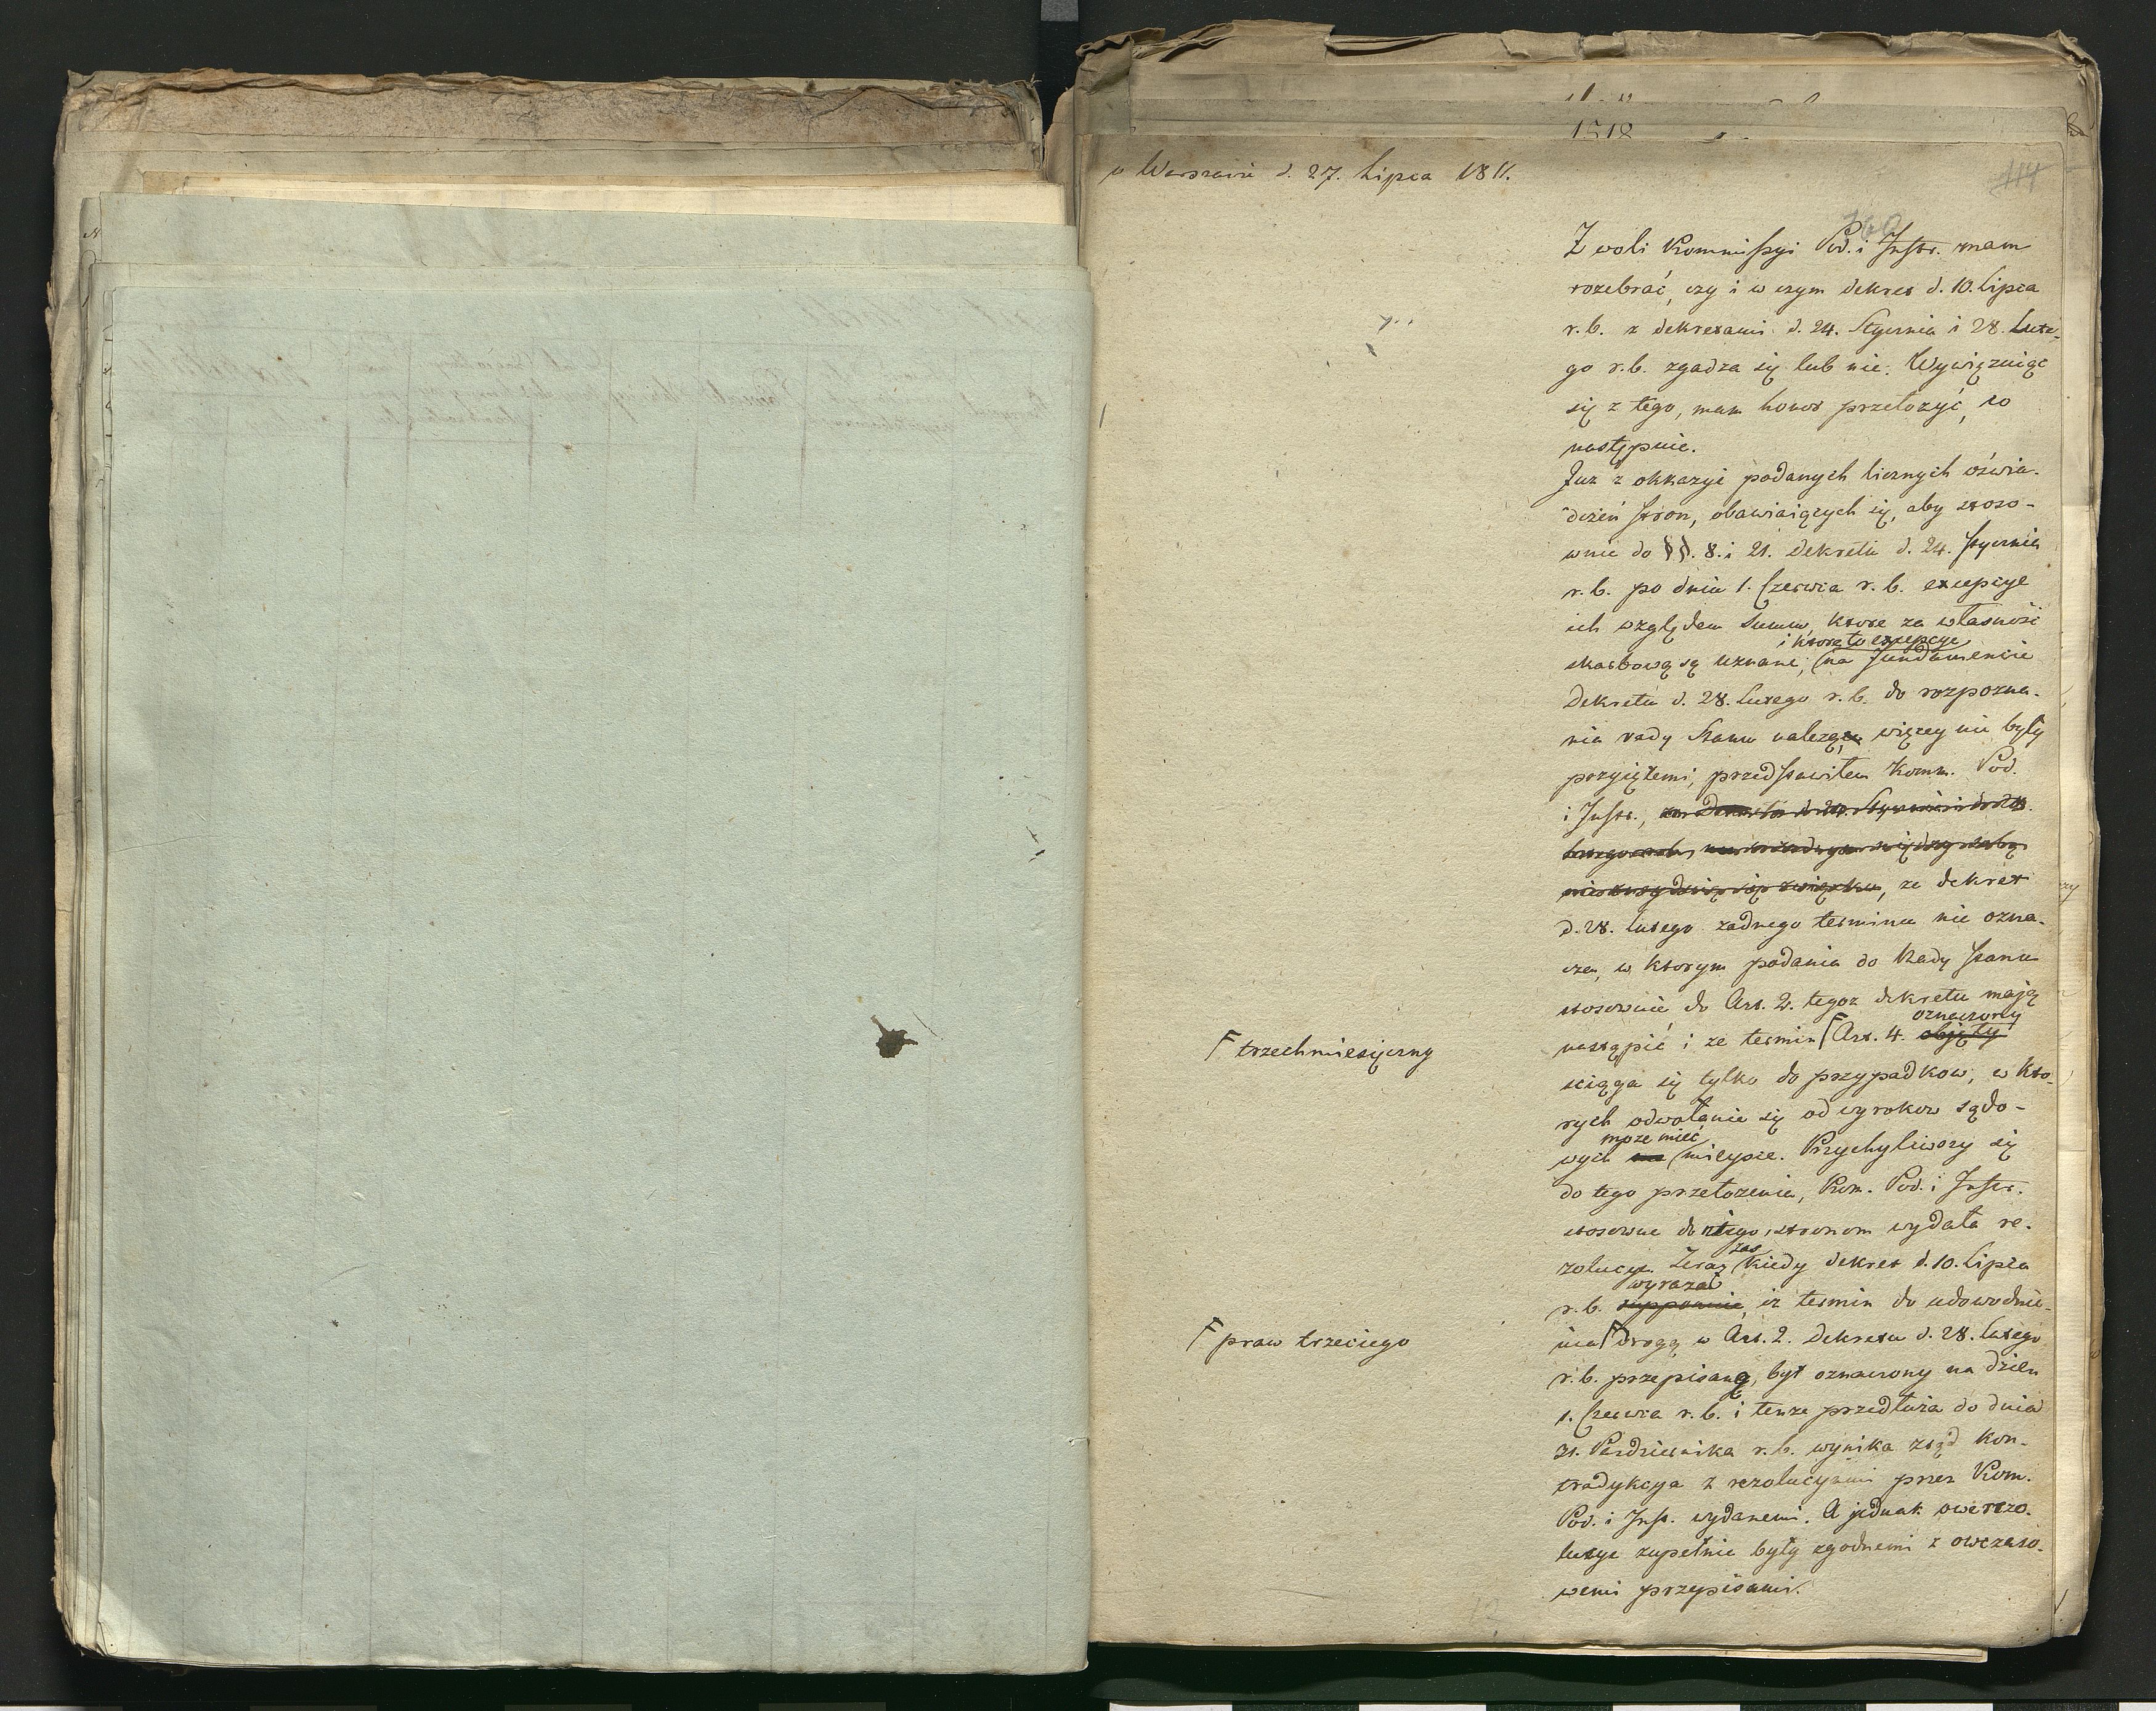 w Warszawie d. 27. Lipca 1811.
114
Z woli Kommissyi Pod. i Instr. mam
rozebrać, czy i w czym dekret d. 10. Lipca
r. b. z dekretami d. 24. Stycznia i 28. Lute-
go r. b. zgadza się lub nie. Wywięzuiąc
się z tego, mam honor przełożyć, co
następuie.
Juz z okkazyi podanych licznych oświa-
dczeń stron, obawiaiących się, aby stoso-
wnie do §§. 8. i 21. Dekretu d. 24. Stycznia
r. b. po dniu 1. Czerwca r. b. excepcye
ich względem Summ, ktore za własność
i ktore to excepcye
skarbową są uznane, na fundamencie
Dekretu d. 28. Lutego r. b. do rozpozna-
nia rady Stanu należą, więcey nie były
przyiętemi, przedstawiłem Komm. Pod.
i Instr.,
że dekret
d. 28. Lutego żadnego terminu nie ozna-
cza, w ktorym podania do Rady Stanu
stosownie do Art. 2. tegoz dekretu mają
oznaczony
nastąpić i ze termin Art. 4. objęty
trzechmiesięczny
sciąga się tylko do przypadkow, w kto-
rych odwołanie się od wyrokow sądo-
może mieć
wych mieysce. Przychyliwszy się
do tego przełożenia, Kom. Pod. i Instr.
stosowne do tego, stronom wydała re-
zas
zolucye. Teraz kiedy dekret d. 10. Lipca
wyrazać
r. b. iz termin do udowodnie-
nia drogą w Art. 2. Dekretu d. 28. Lutego
praw trzeciego
r. b. przepisaną, był oznaczony na dzień
1. Czerwca r. b. i tenże przedłuża do dnia
31. Pazdziernika r. b. wynika ztąd kon-
tradykcya z rezolucyami przez Kom.
Pod. i Inst. wydanemi. A jednak owe rezo-
lucye zupełnie były zgodnemi z owczaso-
wemi przepisami.